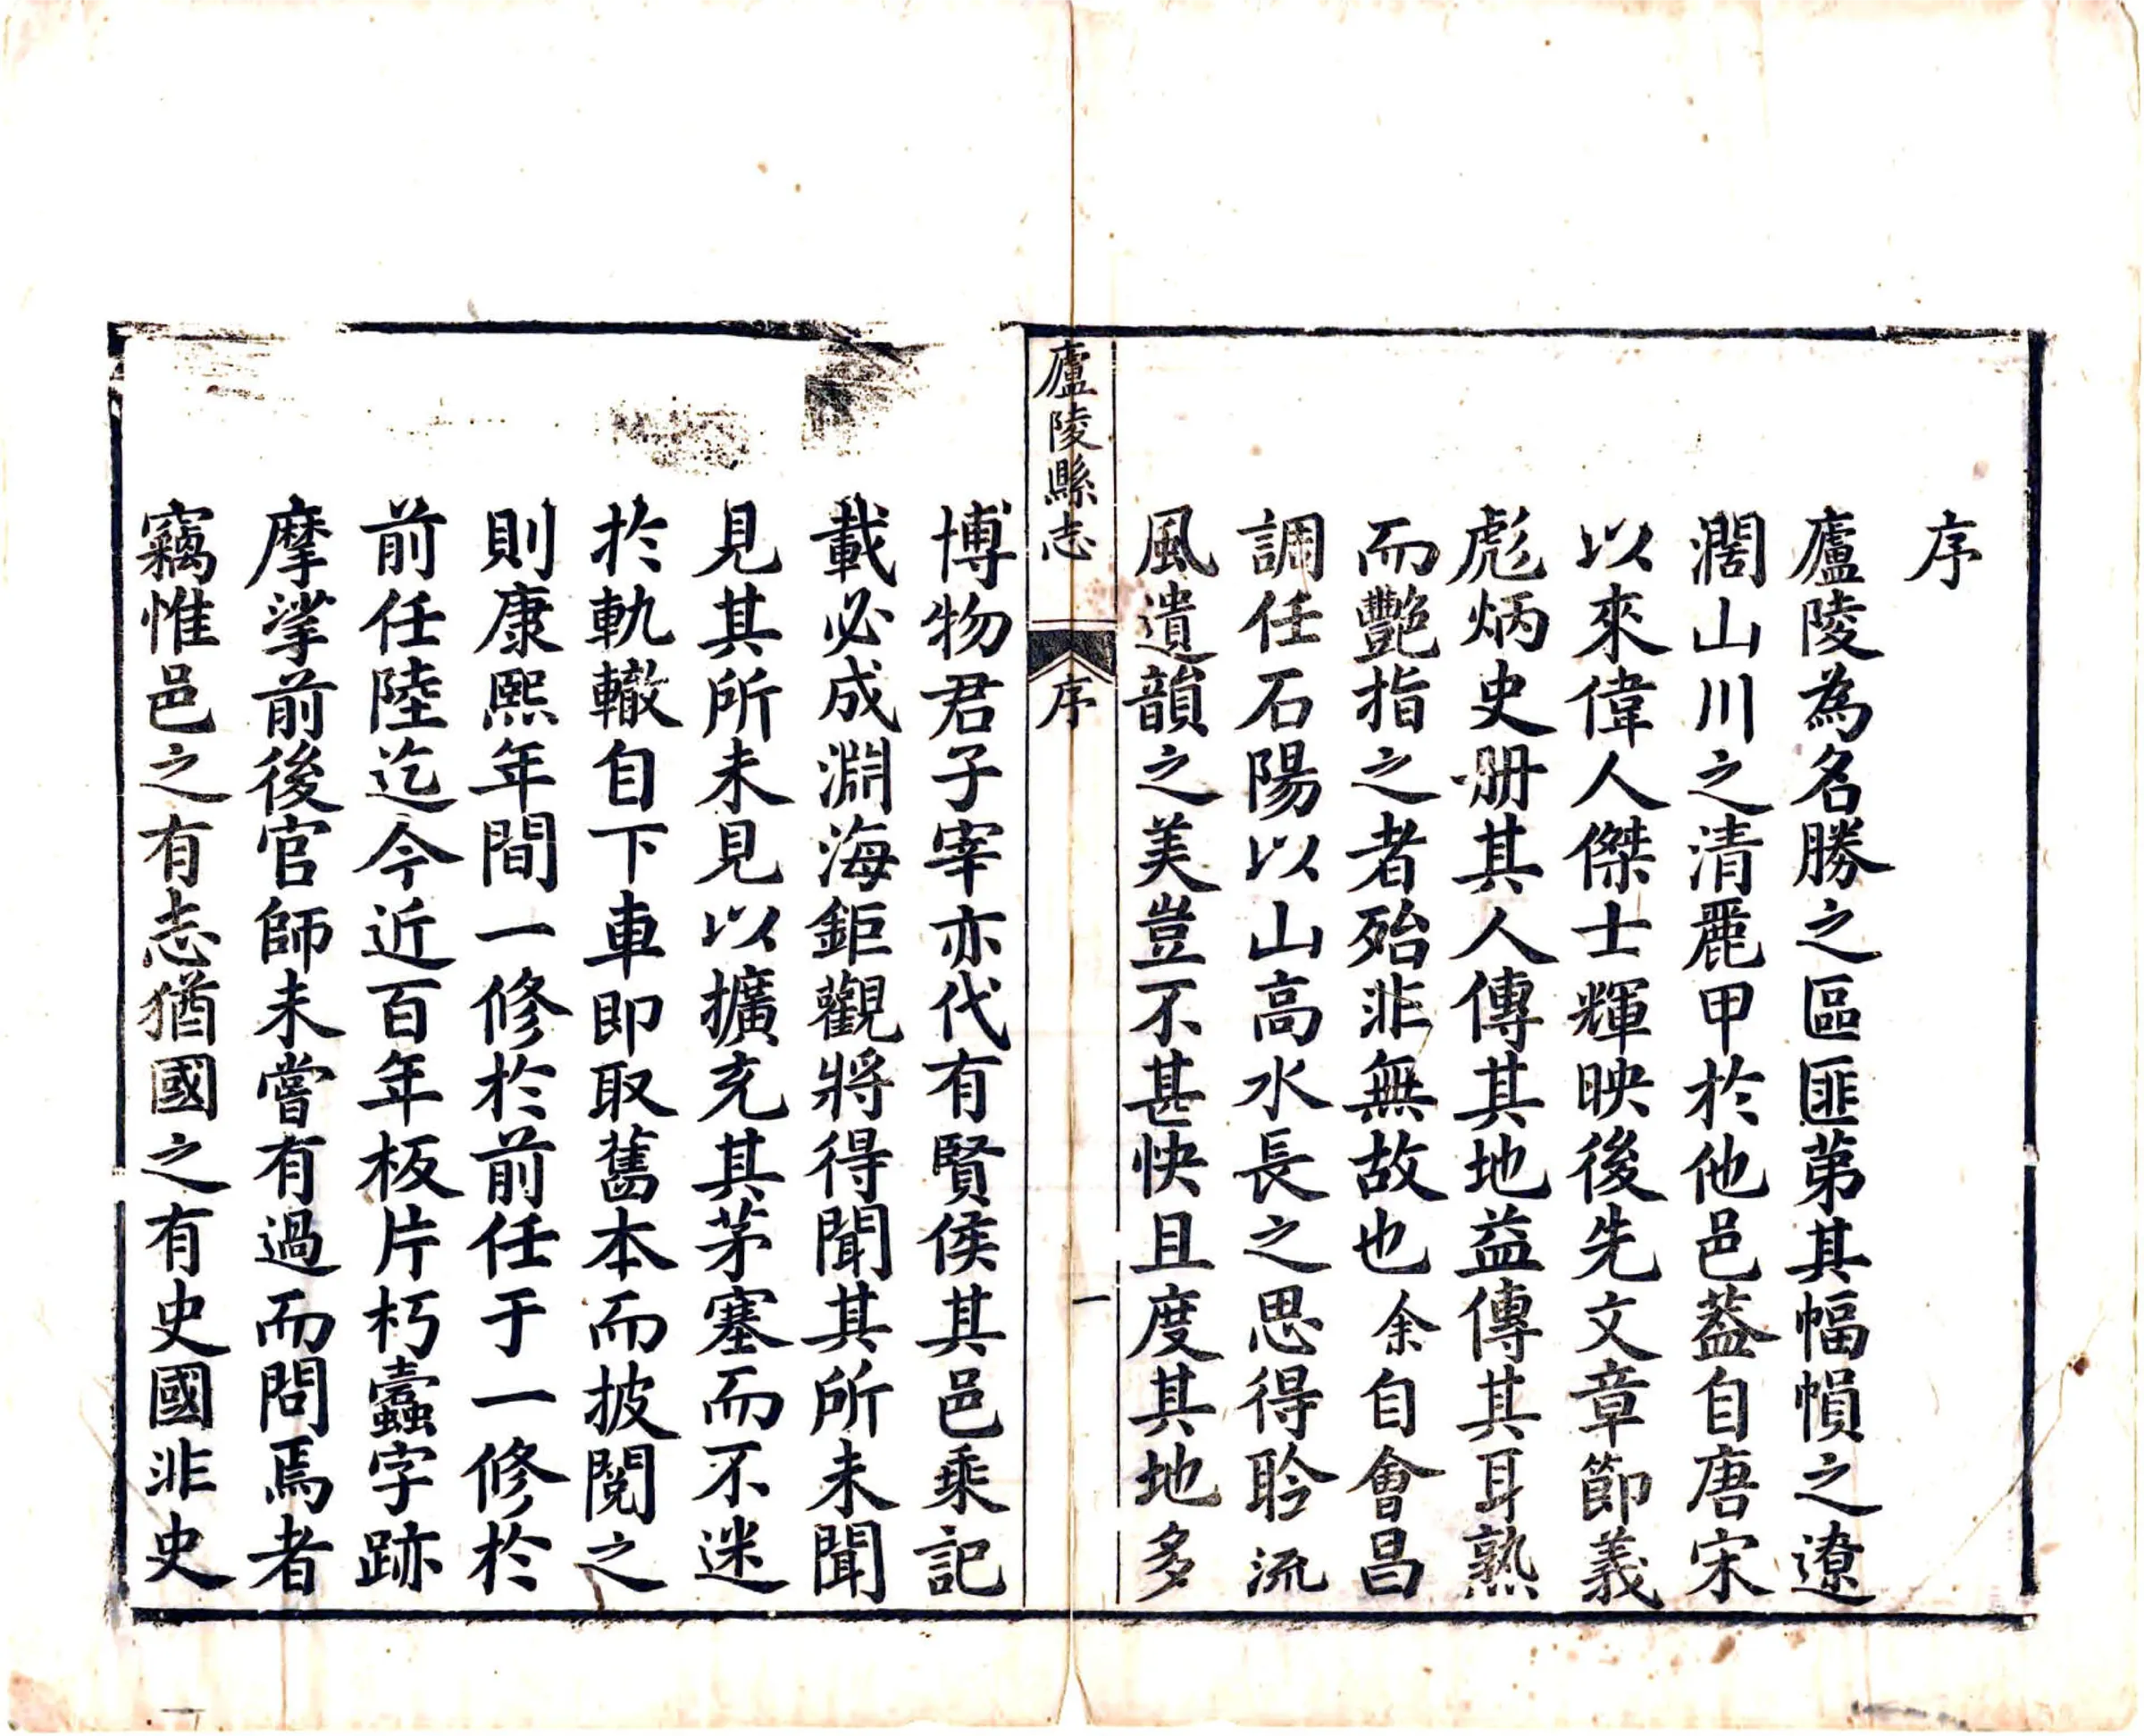 序
廬陵為名勝之區匪苐其幅幀之遼
濶山川之清麗甲於他邑葢自唐宋
以來偉人傑士輝映後先文章節義
彪炳史册其人傳其地益傳其耳熟
而艷指之者殆非無故也余自會昌
調任石陽以山高水長之思得聆流
風遺韻之美豈不甚快且度其地多
廬陵縣志
序
一
博物君子宰亦代有賢侯其邑乘記
載必成淵海鉅觀將得聞其所未聞
見其所未見以擴充其茅塞而不迷
於軌轍自下車即取舊本而披閱之
則康熙年間一修於前任于一修於
前任陸迄今近百年板片朽蠹字跡
摩挲前後官師未嘗有過而問焉者
竊惟邑之有志猶國之有史國非史